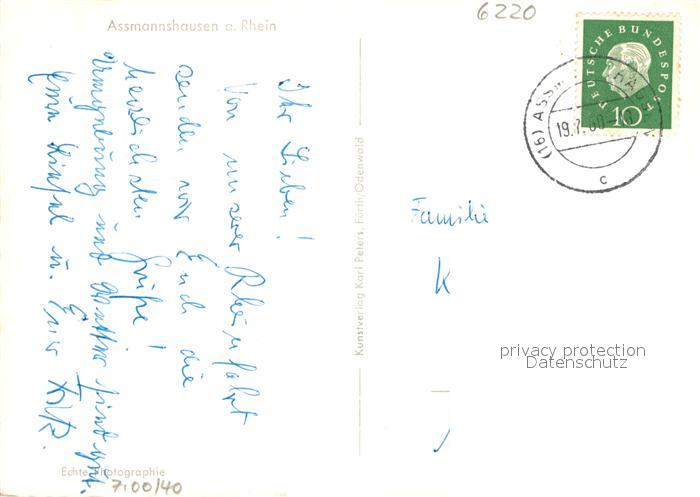 Assmannshausen a. Rhein
6220
DEUTSCHE BUNDESPOST
10
(16) ASSM
19.7.60
c
Ihr Lieben!
Von unserer Rheinfahrt
senden wir Euch die
herzlichsten Grüße!
Umgebung und Wetter sind gut.
Eure
u. Euer
Kunstverlag Karl Peters, Fürth/Odenwald
Familie
K
privacy protection
Datenschutz
Echte Photographie
7.00/40